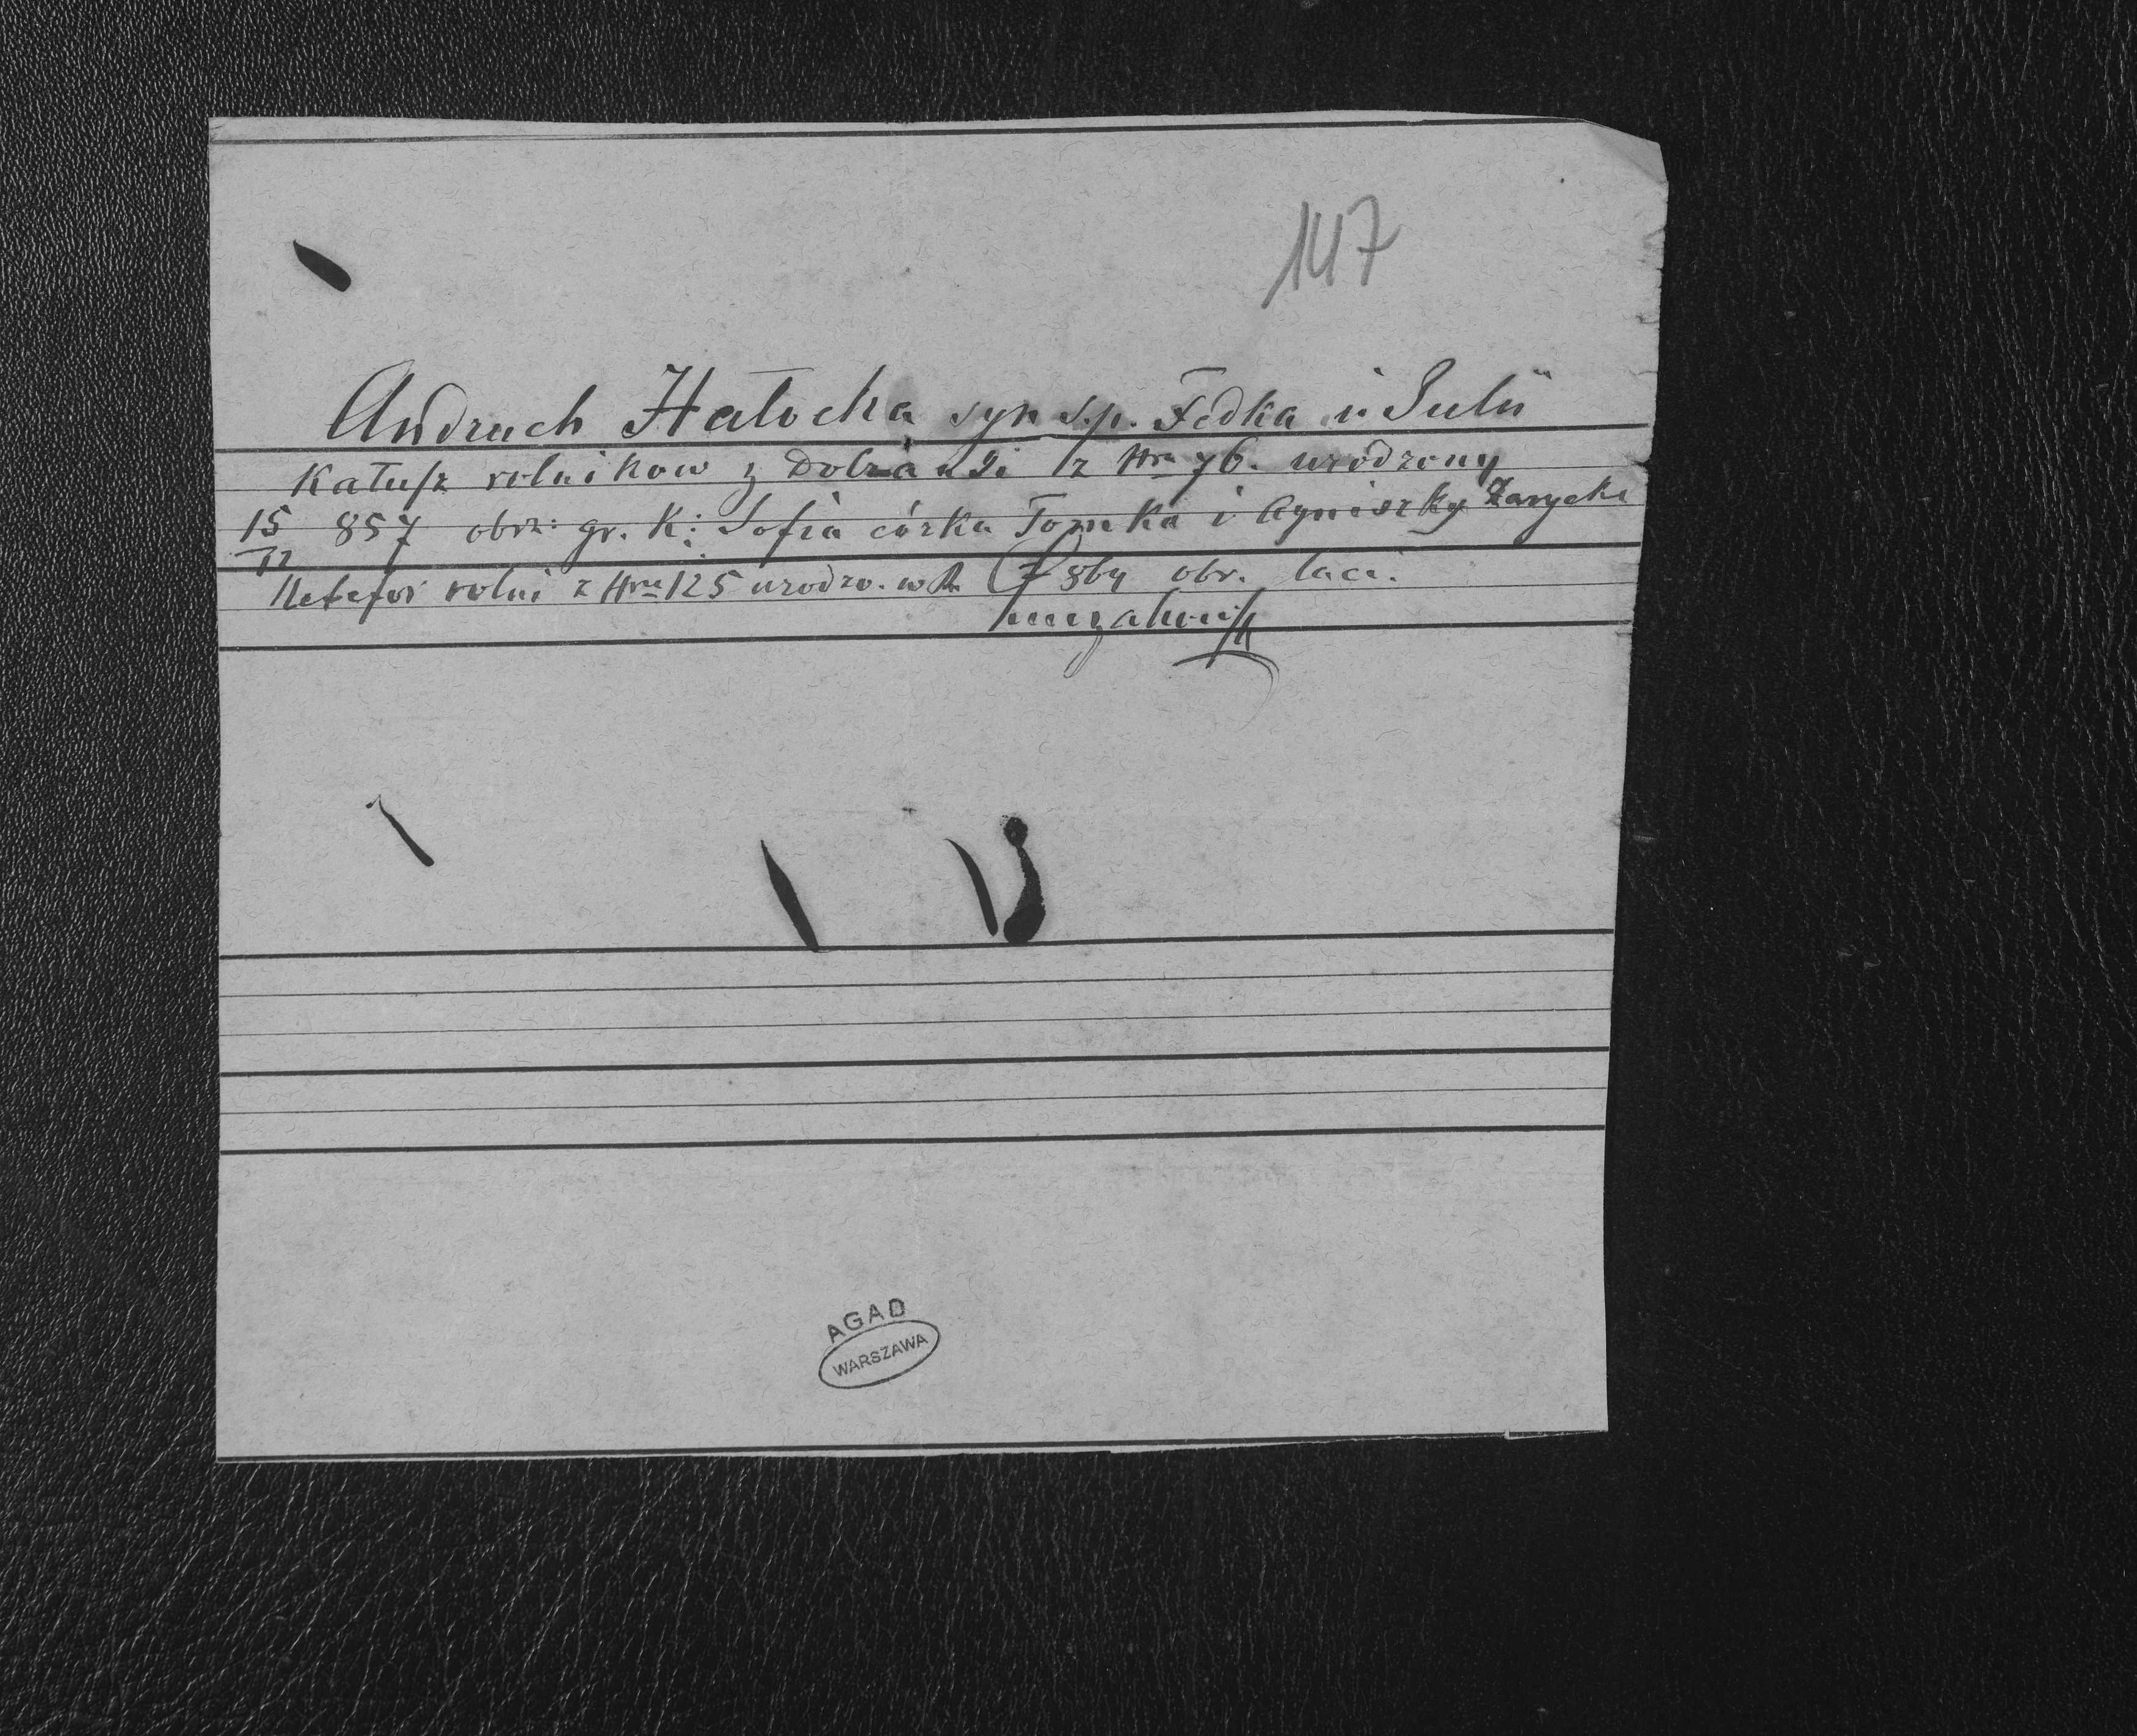 147
Andruch Hałocha syn s.p. Fedka i Julii
Katusz rolnikow z Dobrzan 2i z Nra 76. urodzony
15 857 obrz: gr. K: Sofia córka Tomka i Agniszky Zarycki
II
rolni z Nra 125 urodzo. w R. 864 obr. laci.
AGAD
WARSZAWA